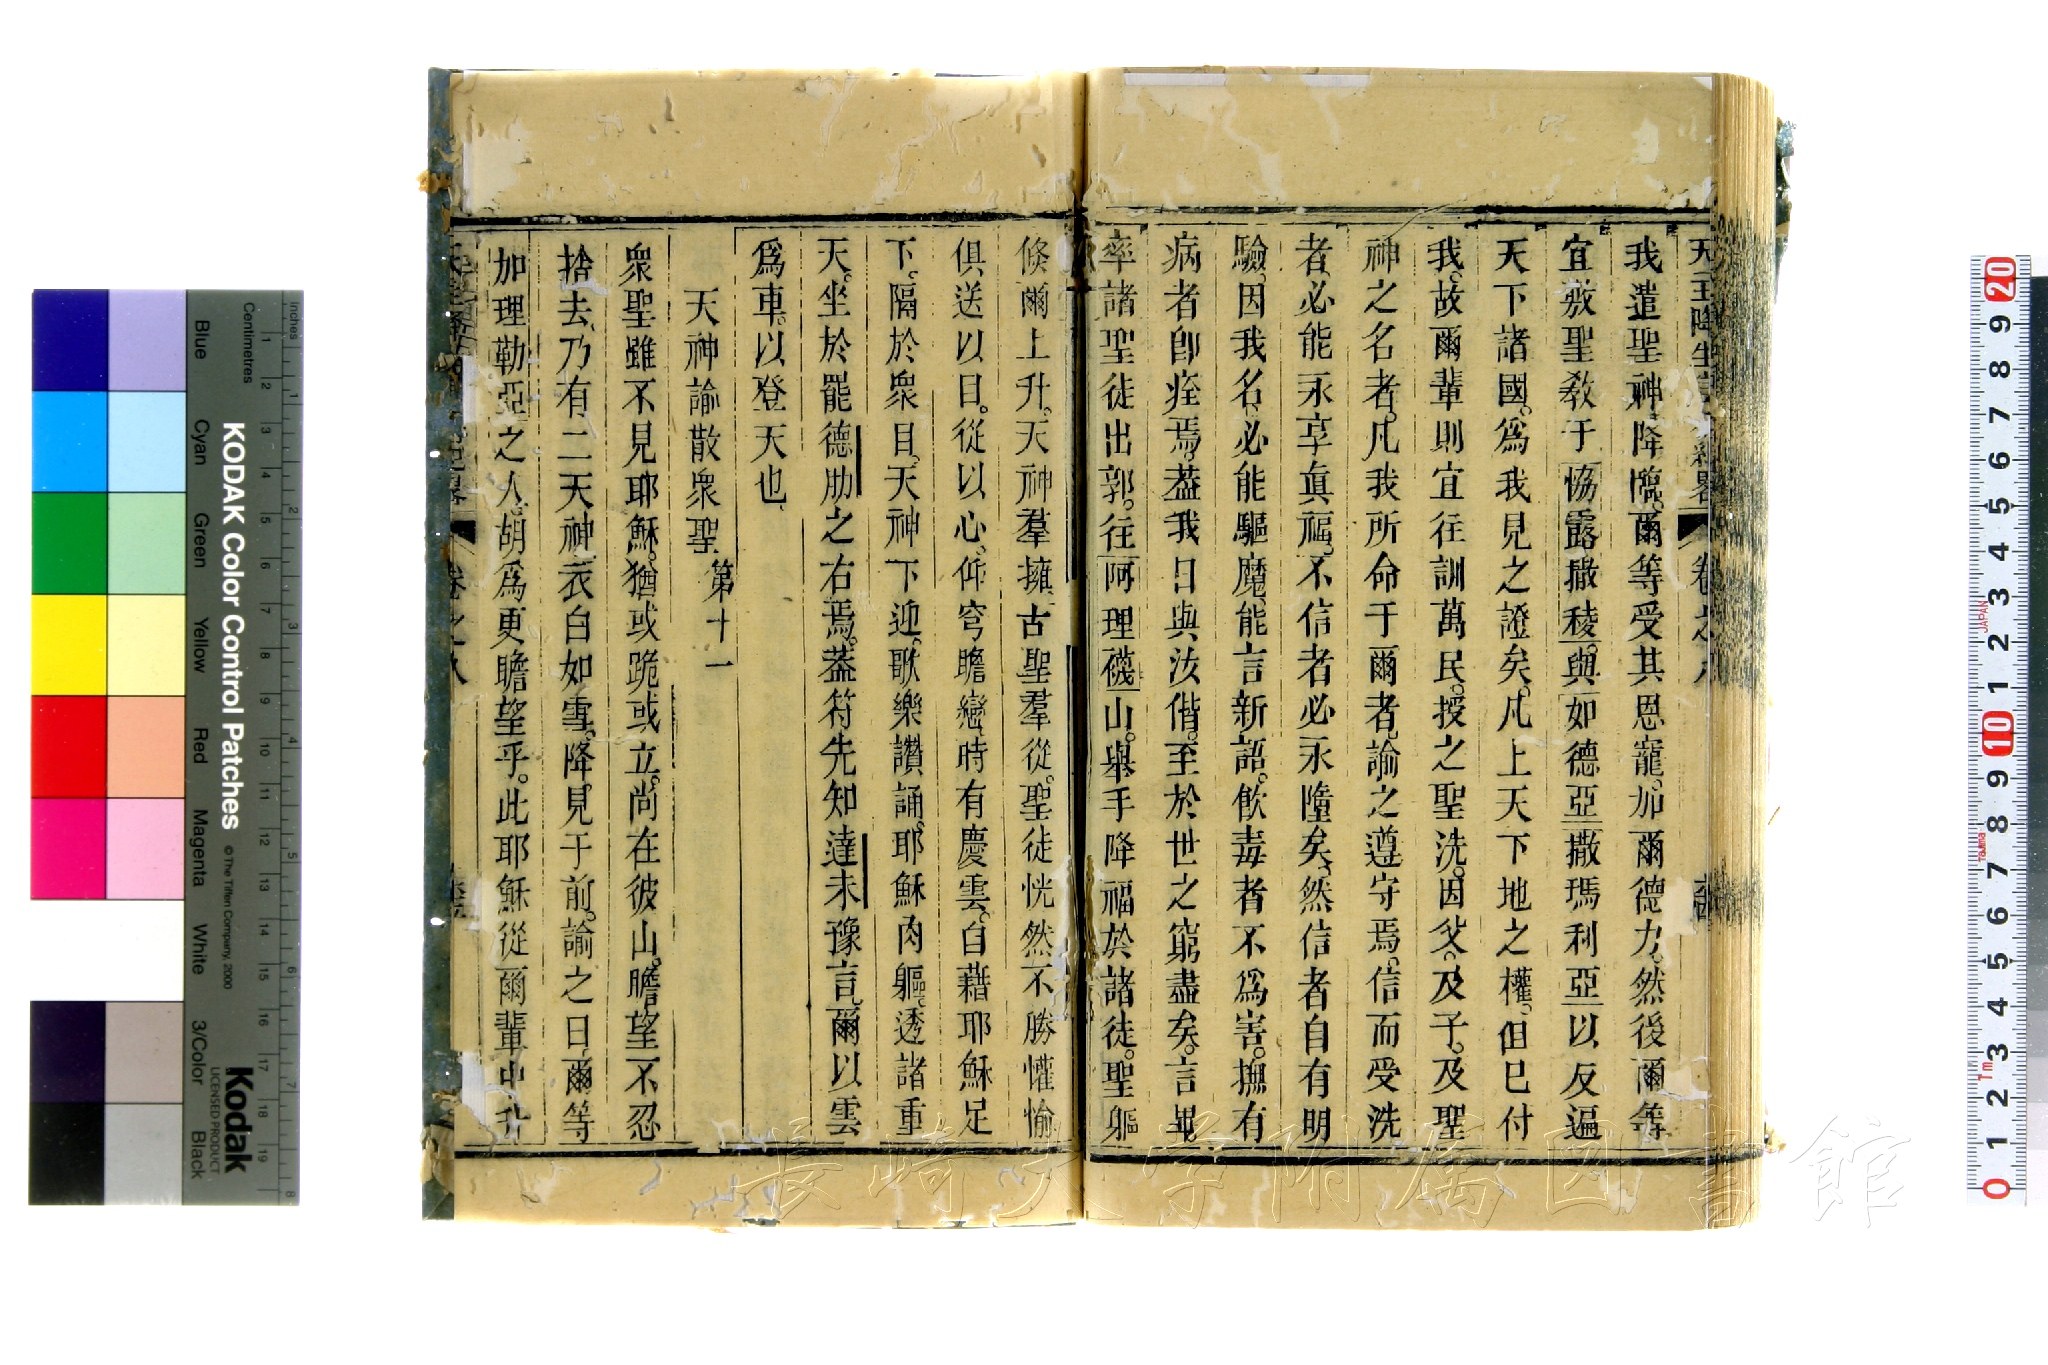 天主降生言行紀畧 卷之八
我遣聖神降臨。爾等受其恩寵。加爾德力。然後爾等
宜敷聖教于協露撒稜。與如德亞撒瑪利亞以及遍
天下諸國。爲我見之證矣。凡上天下地之權。但已付
我。故爾輩則宜往訓萬民。授之聖洗。因父。及子。及聖
神之名者。凡我所命于爾者。諭之遵守焉。信而受洗
者。必能永享眞福。不信者必永墮矣。然信者自有明
驗。因我名。必能驅魔。能言新語。飲毒者不爲害。撫有
病者卽痊焉。葢我日與汝偕。至於世之窮盡矣。言畢
率諸聖徒出郭。往阿理襪山。舉手降福於諸徒。聖軀
倐爾上升。天神羣擁。古聖羣從。聖徒恍然不勝懽愉
俱送以目。從以心。仰穹瞻戀。時有慶雲。白藉耶穌足
下。隔於衆目。天神下迎。歌樂讚誦。耶穌肉軀。透諸重
天。坐於罷德肋之右焉。葢符先知達未豫言。爾以雲
爲車。以登天也
天神諭散衆聖 第十一
衆聖雖不見耶穌。猶或跪或立。尚在彼山。瞻望不忍
捨去。乃有二天神。衣白如雪。降見于前。諭之曰。爾等
加理勒亞之人。胡爲更瞻望乎。此耶穌從爾輩中升
卷之八
KODAK Color Control Patches
© The Tiffen Company, 2000
Kodak
LICENSED PRODUCT
Inches
Centimetres
Blue
Cyan
Green
Yellow
Red
Magenta
White
3/Color
Black
JAPAN
Tajima
長崎大学附属図書館